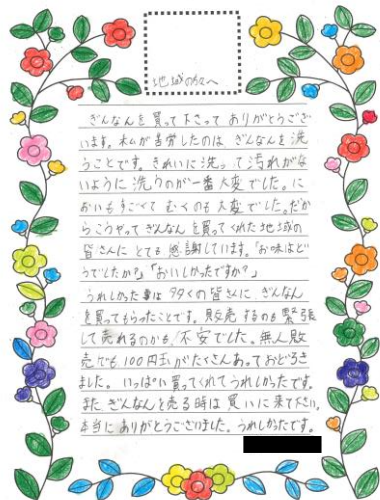 地域の方々へ
ぎんなんを買って下さってありがとうござ
います。私が苦労したのは、ぎんなんを洗
うことです。きれいに洗って汚れがな
いように洗うのが一番大変でした。に
おいもすごくてむくのも大変でした。だか
らこうやってぎんなんを買ってくれた地域の
皆さんにとても感謝しています。「お味はど
うでしたか?」「おいしかったですか?」
うれしかった事は多くの皆さんに、ぎんなん
を買ってもらったことです。販売するのも緊張
して売れるのかも、不安でした。無人販
売でも100円玉がたくさんあっておどろき
ました。いっぱい買ってくれてうれしかったです。
また、ぎんなんを売る時は買いに来て下さい。
本当にありがとうございました。うれしかったです。